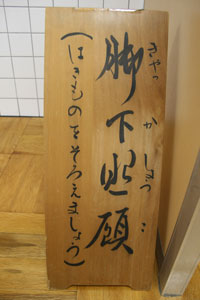 きゃっかしょうこ
脚下照顧
(はきものをそろえましょう)